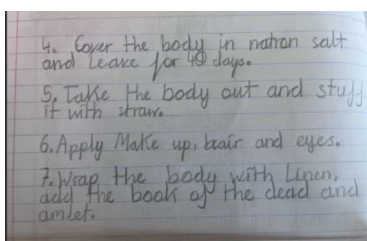 4. Cover the body in natron salt
and Leave for 40 days.
5. Take the body out and stuff
it with straw.
6. Apply Make up, hair and eyes.
7. Wrap the body with Linen,
add the book of the dead and
amlet.